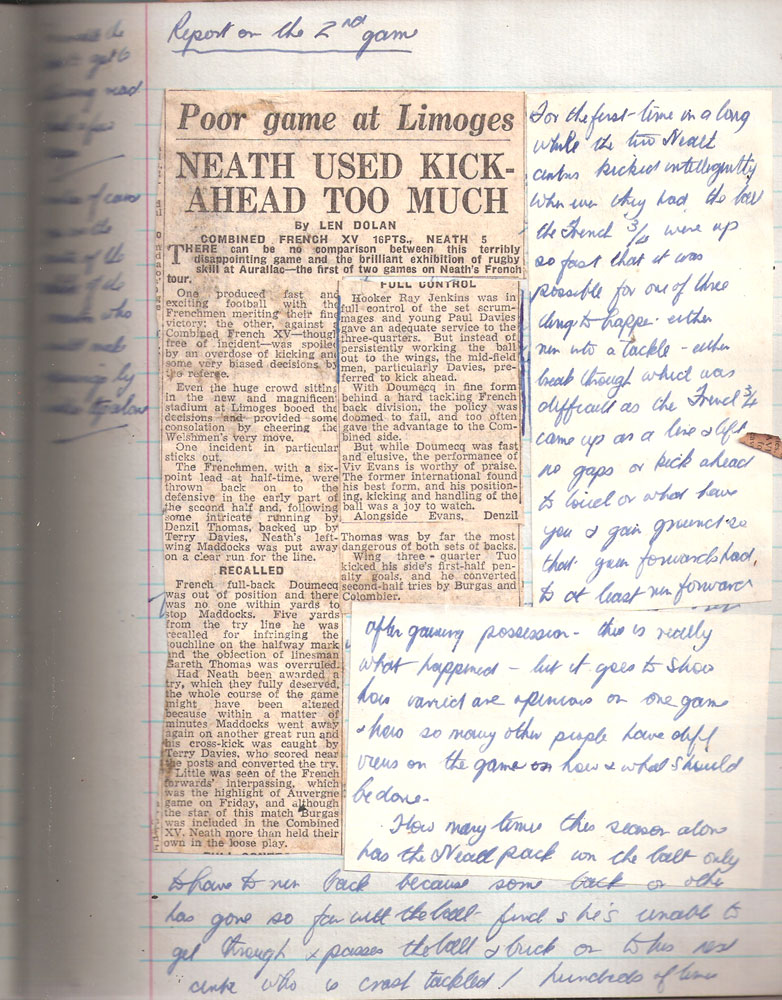 Report on the 2nd game
Poor game at Limoges
NEATH USED KICK-
AHEAD TOO MUCH
By LEN DOLAN
COMBINED FRENCH XV 16PTS., NEATH 5
THERE can be no comparison between this terribly
disappointing game and the brilliant exhibition of rugby
skill at Aurallac—the first of two games on Neath's French
tour.
One produced fast and
exciting football with the
Frenchmen meriting their fine
victory; the other, against a
Combined French XV—though
free of incident—was spoiled
by an overdose of kicking and
some very biased decisions by
the referee.
Even the huge crowd sitting
in the new and magnificent
stadium at Limoges booed the
decisions and provided some
consolation by cheering the
Welshmen's very move.
One incident in particular
sticks out.
The Frenchmen, with a six-
point lead at half-time, were
thrown back on to the
defensive in the early part of
the second half and, following
some intricate running by
Denzil Thomas, backed up by
Terry Davies, Neath's left-
wing Maddocks was put away
on a clear run for the line.
RECALLED
French full-back Doumecq
was out of position and there
was no one within yards to
stop Maddocks. Five yards
from the try line he was
recalled for infringing the
touchline on the halfway mark
and the objection of linesman
Gareth Thomas was overruled.
Had Neath been awarded a
try, which they fully deserved,
the whole course of the game
might have been altered
because within a matter of
minutes Maddocks went away
again on another great run and
his cross-kick was caught by
Terry Davies, who scored near
the posts and converted the try.
Little was seen of the French
forwards' interpassing, which
was the highlight of Auvergne
game on Friday, and although
the star of this match Burgas
was included in the Combined
XV. Neath more than held their
own in the loose play.
FULL CONTROL
Hooker Ray Jenkins was in
full control of the set scrum-
mages and young Paul Davies
gave an adequate service to the
three-quarters. But instead of
persistently working the ball
out to the wings, the mid-field
men, particularly Davies, pre-
ferred to kick ahead.
With Doumecq in fine form
behind a hard tackling French
back division, the policy was
doomed to fail, and too often
gave the advantage to the Com-
bined side.
But while Doumecq was fast
and elusive, the performance of
Viv Evans is worthy of praise.
The former international found
his best form, and his position-
ing, kicking and handling of the
ball was a joy to watch.
Alongside Evans, Denzil
Thomas was by far the most
dangerous of both sets of backs.
Wing three-quarter Tuo
kicked his side's first-half pen-
alty goals, and he converted
second-half tries by Burgas and
Colombier.
For the first-time in a long
while the two Neath
centres kicked intelligently
when ever they had the ball
the French 3/4 were up
so fast that it was
possible for one of three
things to happe - either
run into a tackle - either
break through which was
difficult as the French 3/4
came up as a line & left
no gaps or kick ahead
to or what have
you & gain ground so
that your forwards had
to at least run forward
after gaining possession - this is really
what happened - but it goes to show
how varied are opinions on one game
& how so many other people have diff
views on the game on how & what should
be done -
How many times this season alone
has the Neath pack won the ball only
to have to run back because some back or other
has gone so far with the ball - finds he's unable to
get through & passes the ball & back on to his next
centre who is crash tackled! hundreds of times